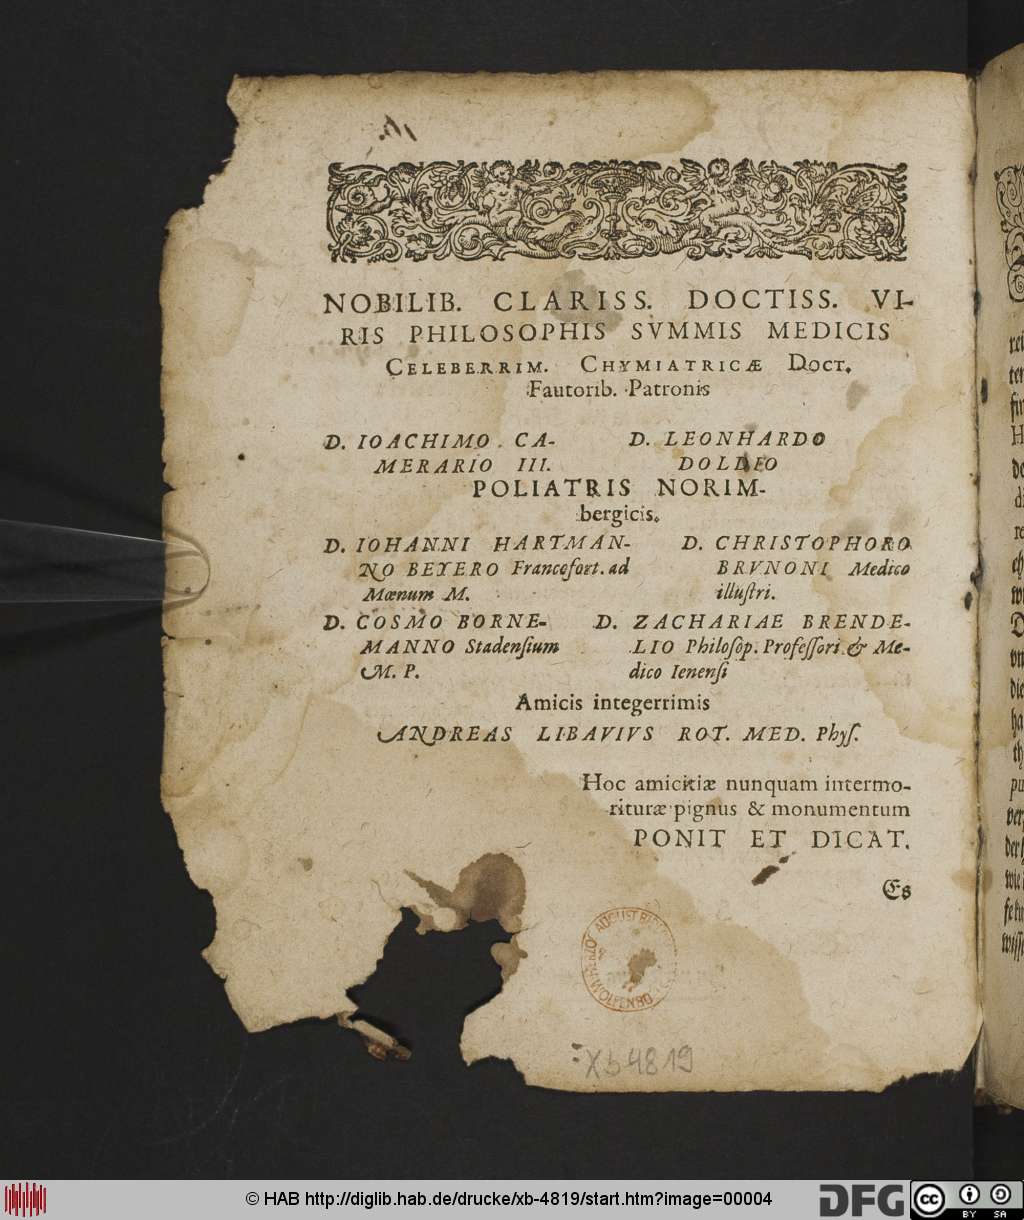 NOBILIB. CLARISS. DOCTISS. VI-
RIS PHILOSOPHIS SVMMIS MEDICIS
CELEBERRIM. CHYMIATRICÆ DOCT.
Fautorib. Patronis
D. IOACHIMO CA-
MERARIO III.
D. LEONHARDO
DOLDIO
POLIATRIS NORIM-
bergicis.
D. IOHANNI HARTMAN-
NO BEYERO Francofort. ad
Mœnum M.
D. CHRISTOPHORO
BRVNONI Medico
illuſtri.
D. COSMO BORNE-
MANNO Stadenſium
M. P.
D. ZACHARIAE BRENDE-
LIO Philoſop. Profeſſori & Me-
dico Ienenſi
Amicis integerrimis
ANDREAS LIBAVIVS ROT. MED. Phyſ.
Hoc amicitiæ nunquam intermo-
rituræ pignus & monumentum
PONIT ET DICAT.
Es
Xb 4819
© HAB http://diglib.hab.de/drucke/xb-4819/start.htm?image=00004
DFG
cc
BY SA